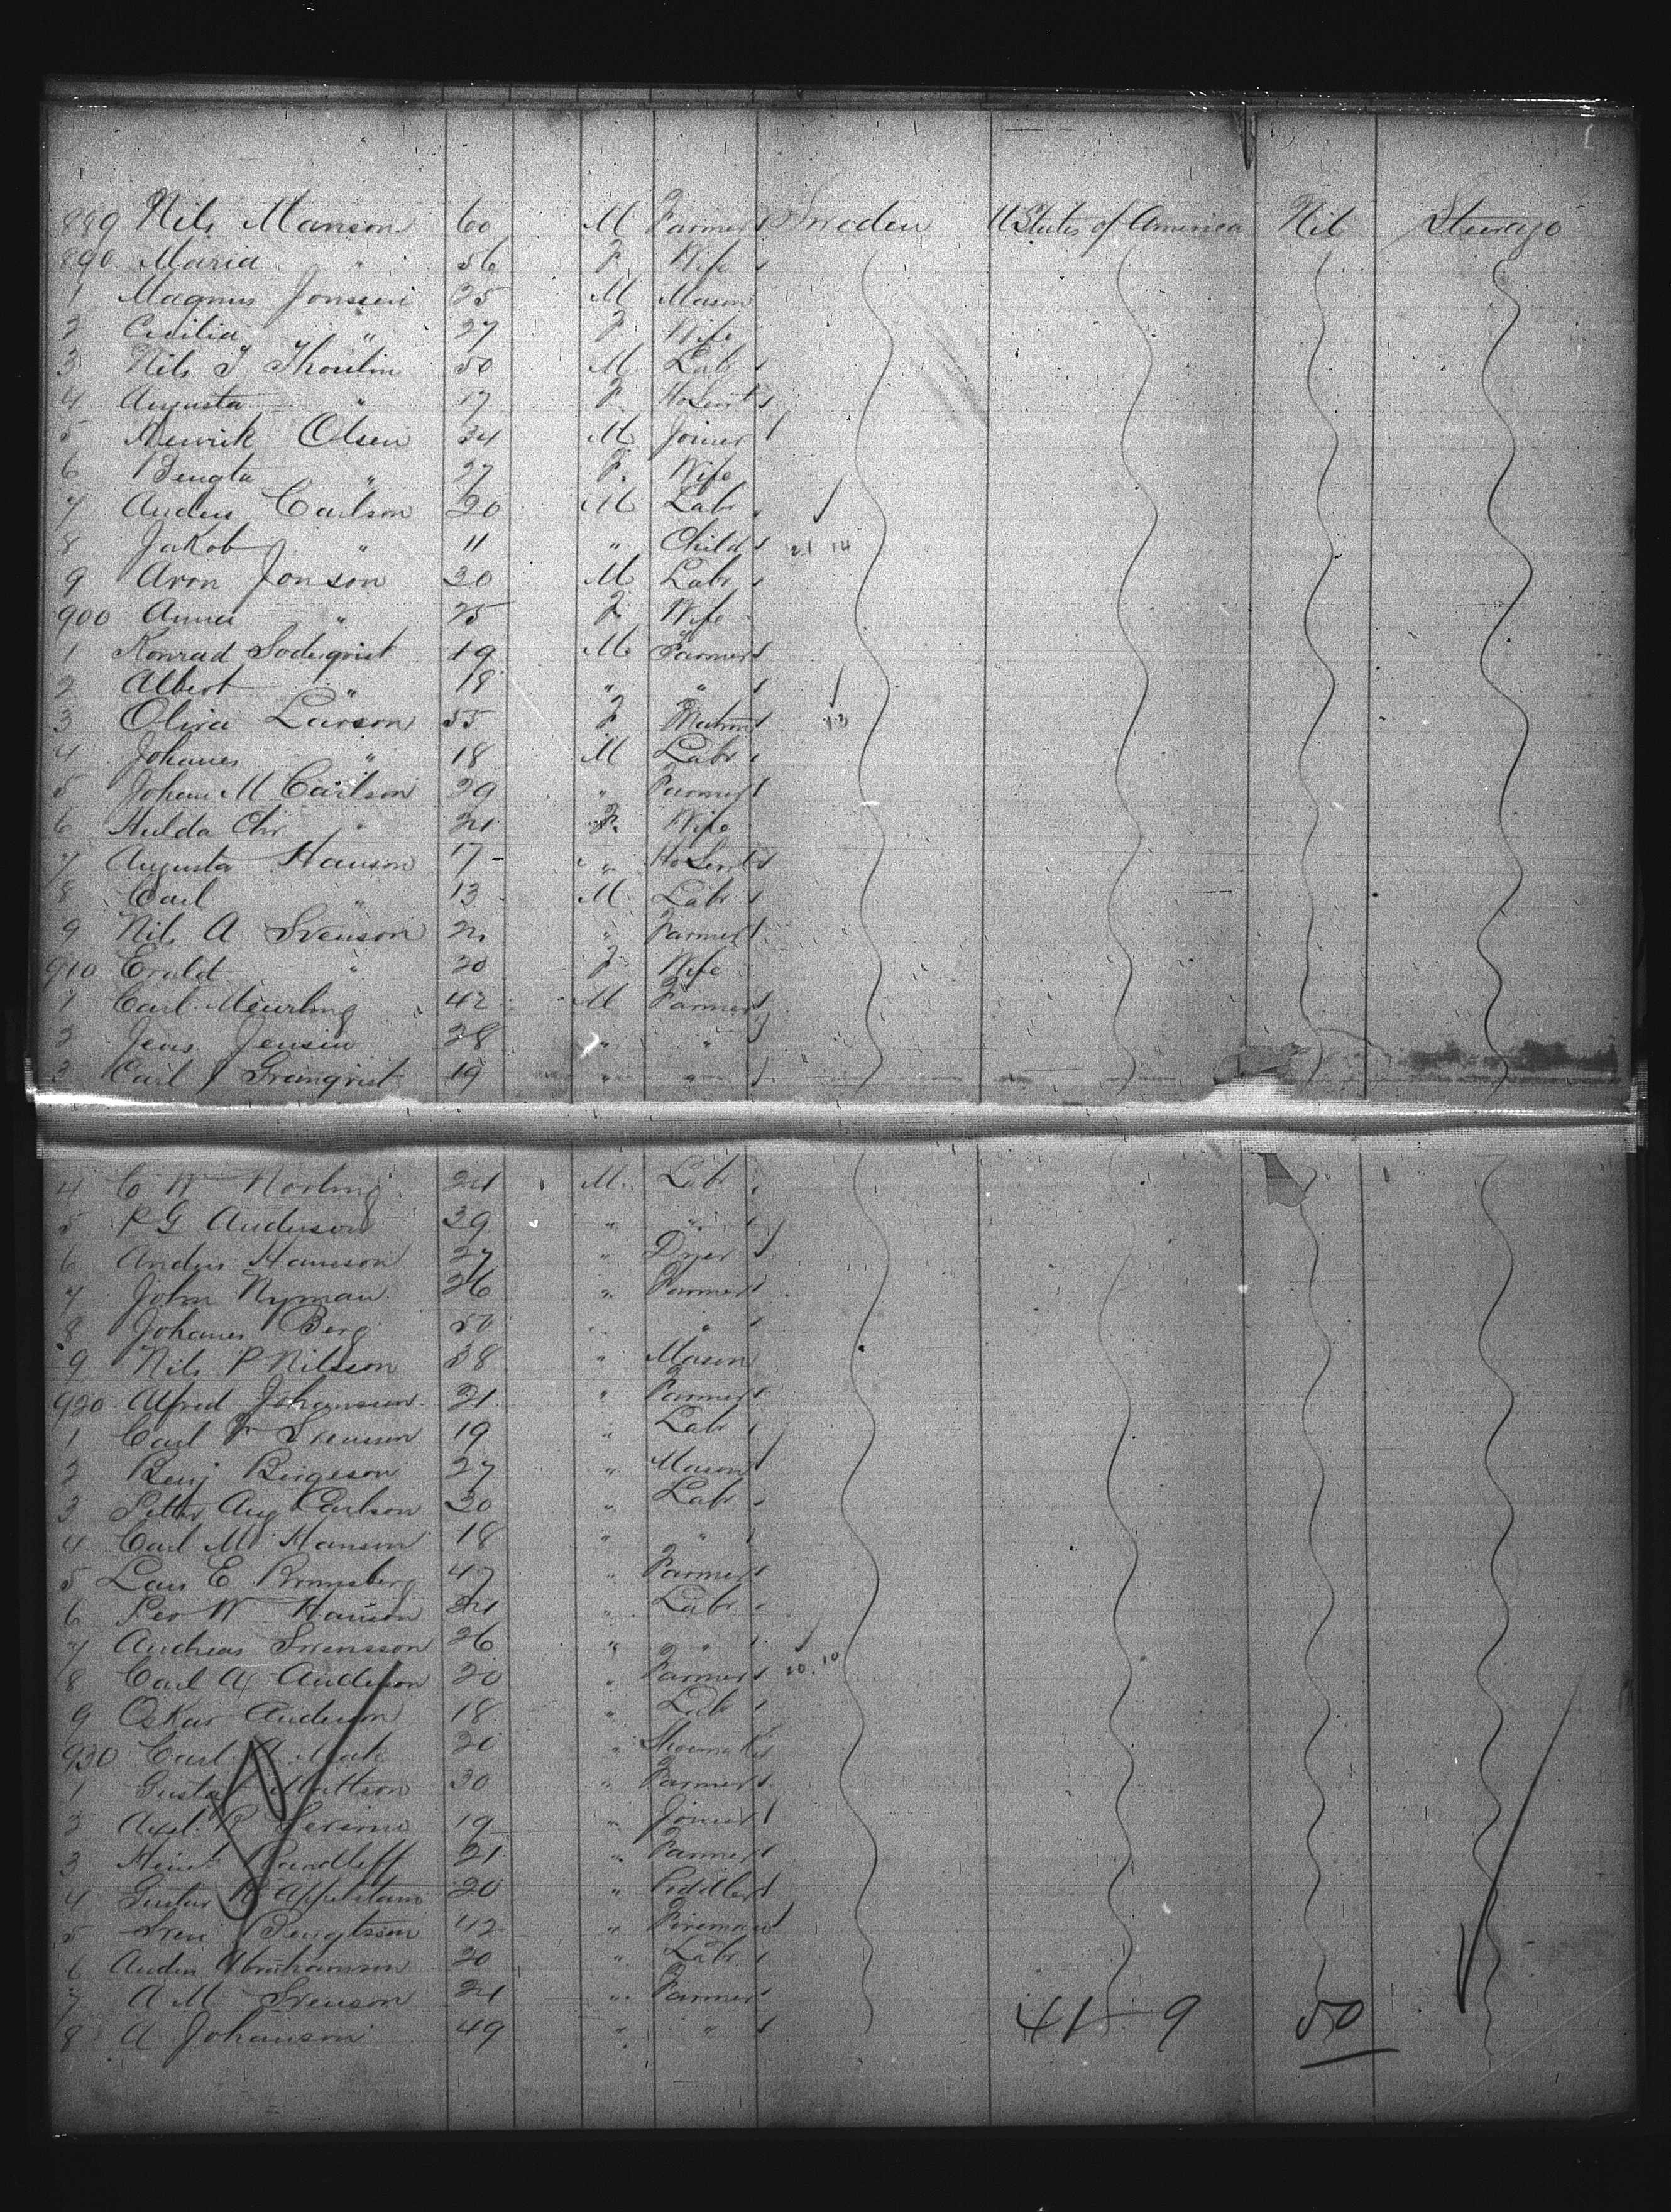 889 Nils Manson 60 M Farmer Sweden U States of America Nil Steerage
890 Maria " 56 F Wife
1 Magnus Jonssen 25 M Mason
2 Cecilia " 27 F Wife
3 Nils T Thoulin 50 M Labr
4 Augusta " 17 F HoServt
5 Henrick Olsen 34 M Joiner
6 Bengta " 27 F. Wife
7 Anders Carlson 20 M Labr
8 Jakob " 11 " Child 21 14
9 Aron Jonson 30 M Labr
900 Anna " 25 F Wife
1 Konrad Soderqvist 19 M Farmer
2 Albert " 18 " "
3 Oliva Larson 55 F Matron 13
4 Johanes " 18 M Labr
5 Johan M Carlson 29 " Farmer
6 Hulda Chr " 21 F. Wife
7 Augusta Hanson 17 " HoServt
8 Carl " 13 M Labr
9 Nils A Svenson 21 " Farmer
910 Evald " 20 F Wife
1 Carl Meurling 42 M Farmer
2 Jens Jensen 28 " "
3 Carl J Granqvist 19 " "
4 C W Norling 24 M. Labr
5 P G Anderson 39 " "
6 Anders Hansson 27 " Dyer
7 John Nyman 26 " Farmer
8 Johanes Berg 50 " "
9 Nils P Nilsson 38 " Mason
920 Alfred Johansson 21 " Farmer
1 Carl F Svensson 19 " Labr
2 Benj Birgeson 27 " Mason
3 Petter Aug Carlson 30 " Labr
4 Carl M Hanson 18 " "
5 Lars E Bronsberg 47 " Farmer
6 Per W Hanson 24 " Labr
7 Andreas Svensson 26 " "
8 Carl A Anderson 20 " Farmer 20.10
9 Oskar Anderson 18 " Labr
930 Carl A 21 " Shoemaker
1 Gustaf Mattson 30 " Farmer
2 Axel R 19 " Joiner
3 21 " Farmer
4 Gustav 20 " Peddler
5 Sven Bengtsson 42 " Fireman
6 Anders Abrahamson 20 " Labr
7 A M Svenson 24 " Farmer
8 A Johanson 49 " "
41 9 50